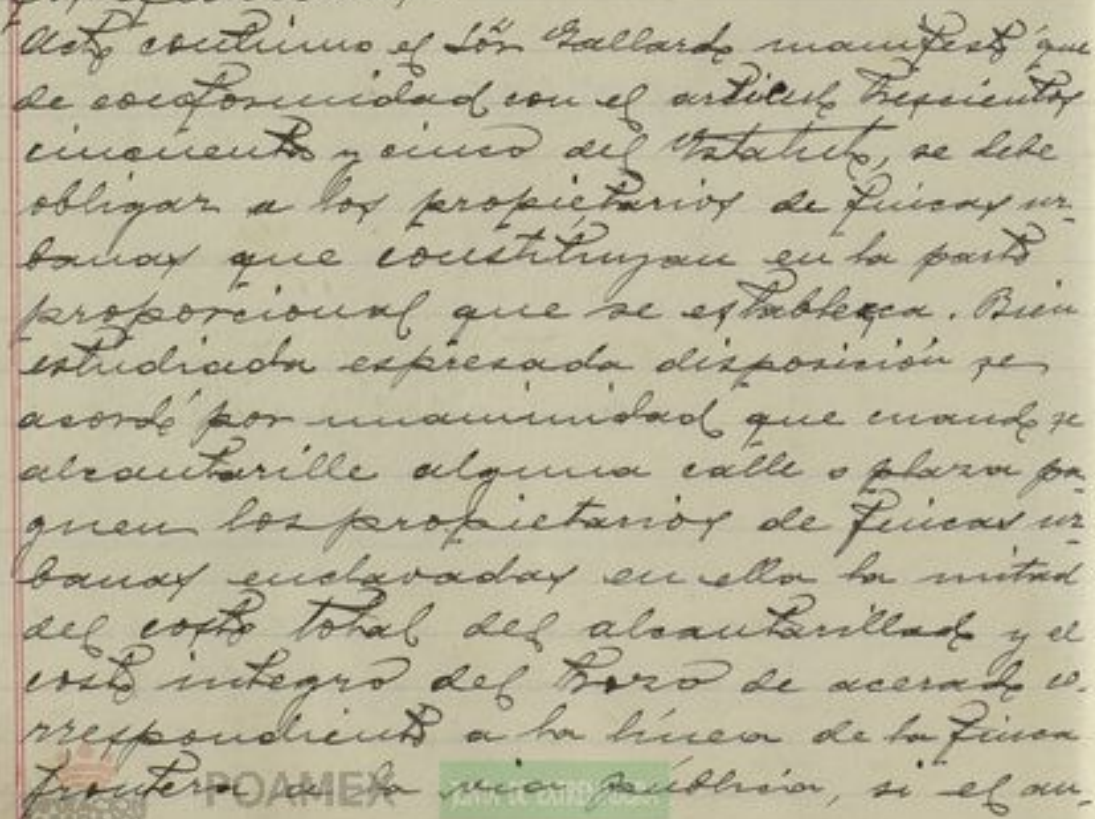 Acto continuo el Sör Gallardo manifestó que
de conformidad con el articulo trescientos
cincuenta y cinco del Estatuto, se debe
obligar a los propietarios de fincas ur-
banas que constitúyan en la parte
proporcional que se establezca. Bien
estudiada espresada disposición se
acordó por unanimidad que cuando se
alcantarille alguna calle o plaza pa-
guen los propietarios de fincas ur-
banas enclavadas en ella la mitad
del costo total del alcantarillado y el
costo integro del trozo de acerado co-
rrespondiente a la línea de la finca
frontera a la via pública, si el au-
POAMEX
JUNTA DE EXTREMADURA